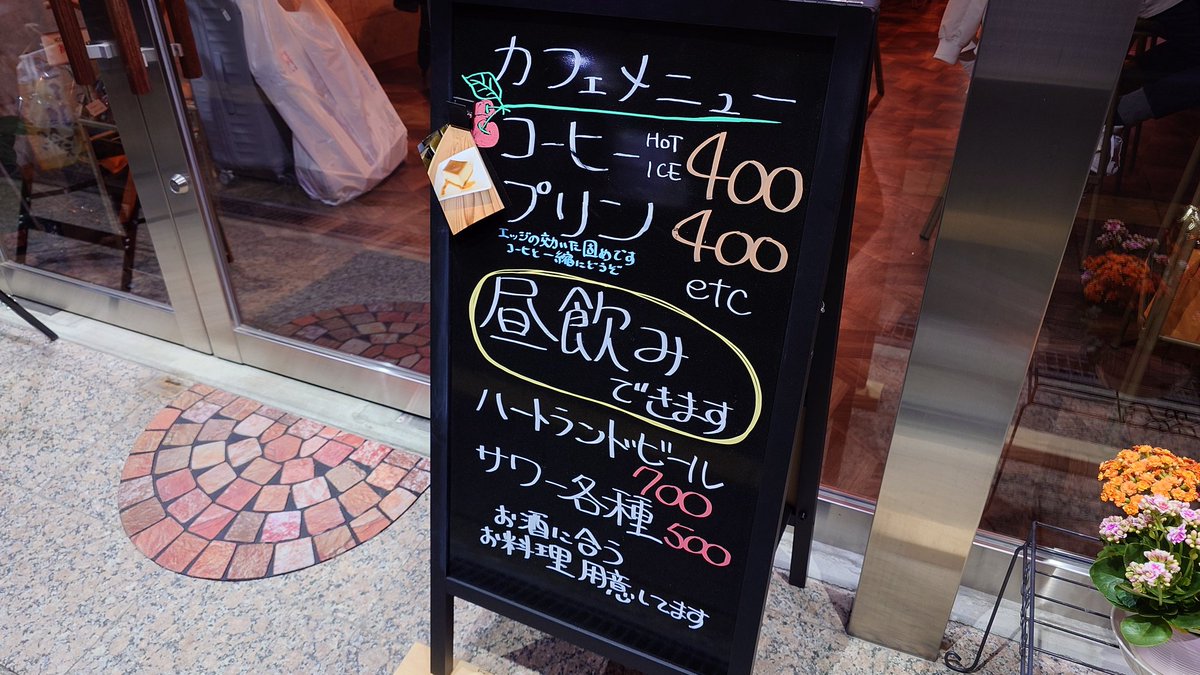 カフェメニュー
コーヒー HOT ICE 400
プリン 400
エッジの効いた固めです
コーヒーと一緒にどうぞ
etc
昼飲み
できます
ハートランドビール
700
サワー各種 500
お酒に合う
お料理用意してます